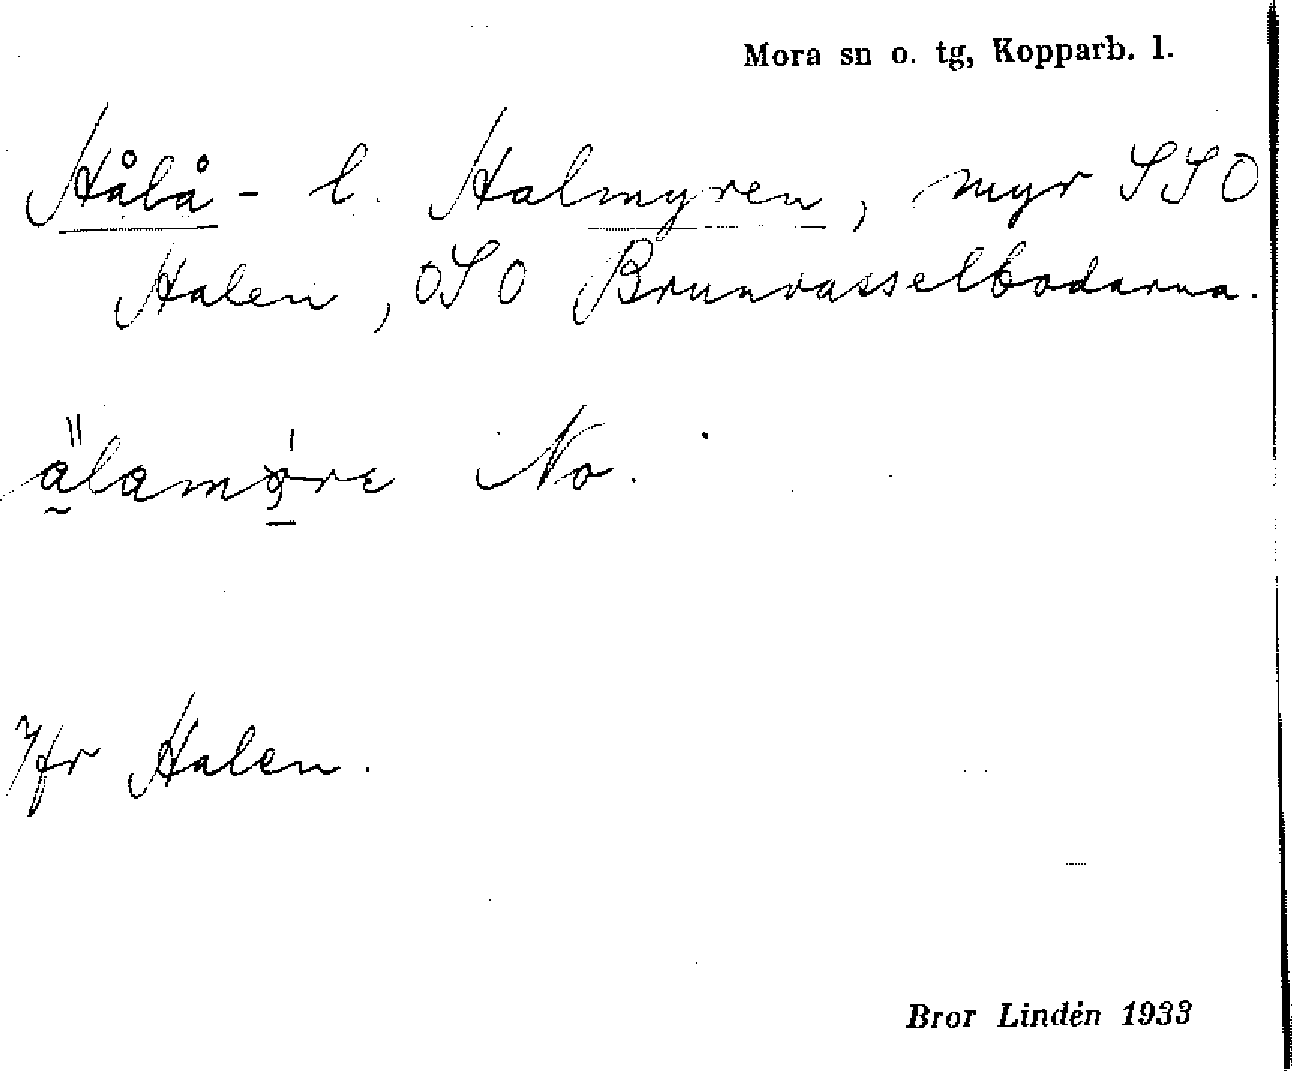 Mora sn o. tg, Kopparb. l.
Hålå- l. Halmyren, myr SSO
Halen, OSO Brunvasselbodarna.
älamøre No.
Jfr Halen.
Bror Lindén 1933